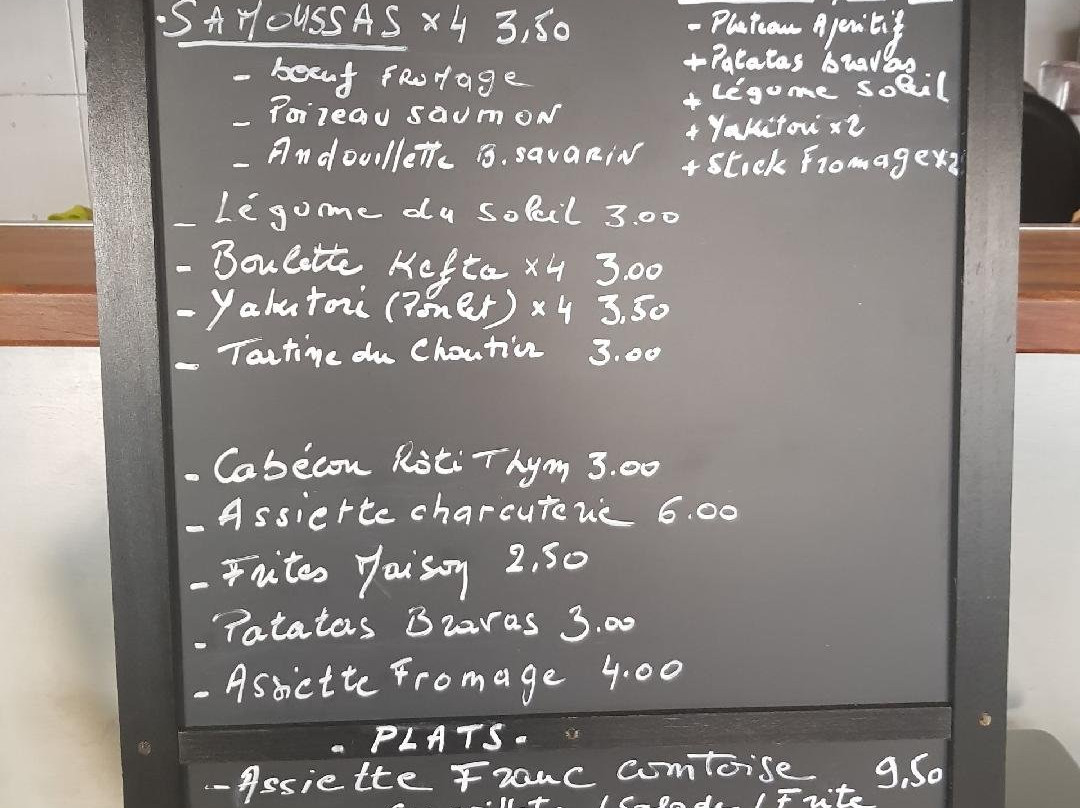 SAMOUSSAS x4 3,50
- boeuf FROMage
- Poireau saumon
- Andouillette B.savarin
- Légume du soleil 3.00
- Boulette Kefta x4 3.00
- Yakitori (Poulet) x4 3,50
- Tartine du Choutier 3.00
- Cabécou Rôti Thym 3.00
- Assiette charcuterie 6.00
- Frites Maison 2,50
- Patatas Bravas 3.00
- Assiette Fromage 4.00
- Plateau Aperitif
+ Patatas Bravas
+ Légume soleil
+ Yakitori x2
+ Stick Fromage x2
- PLATS -
- Assiette Franc comtoise 9,50
/Salade/Frite